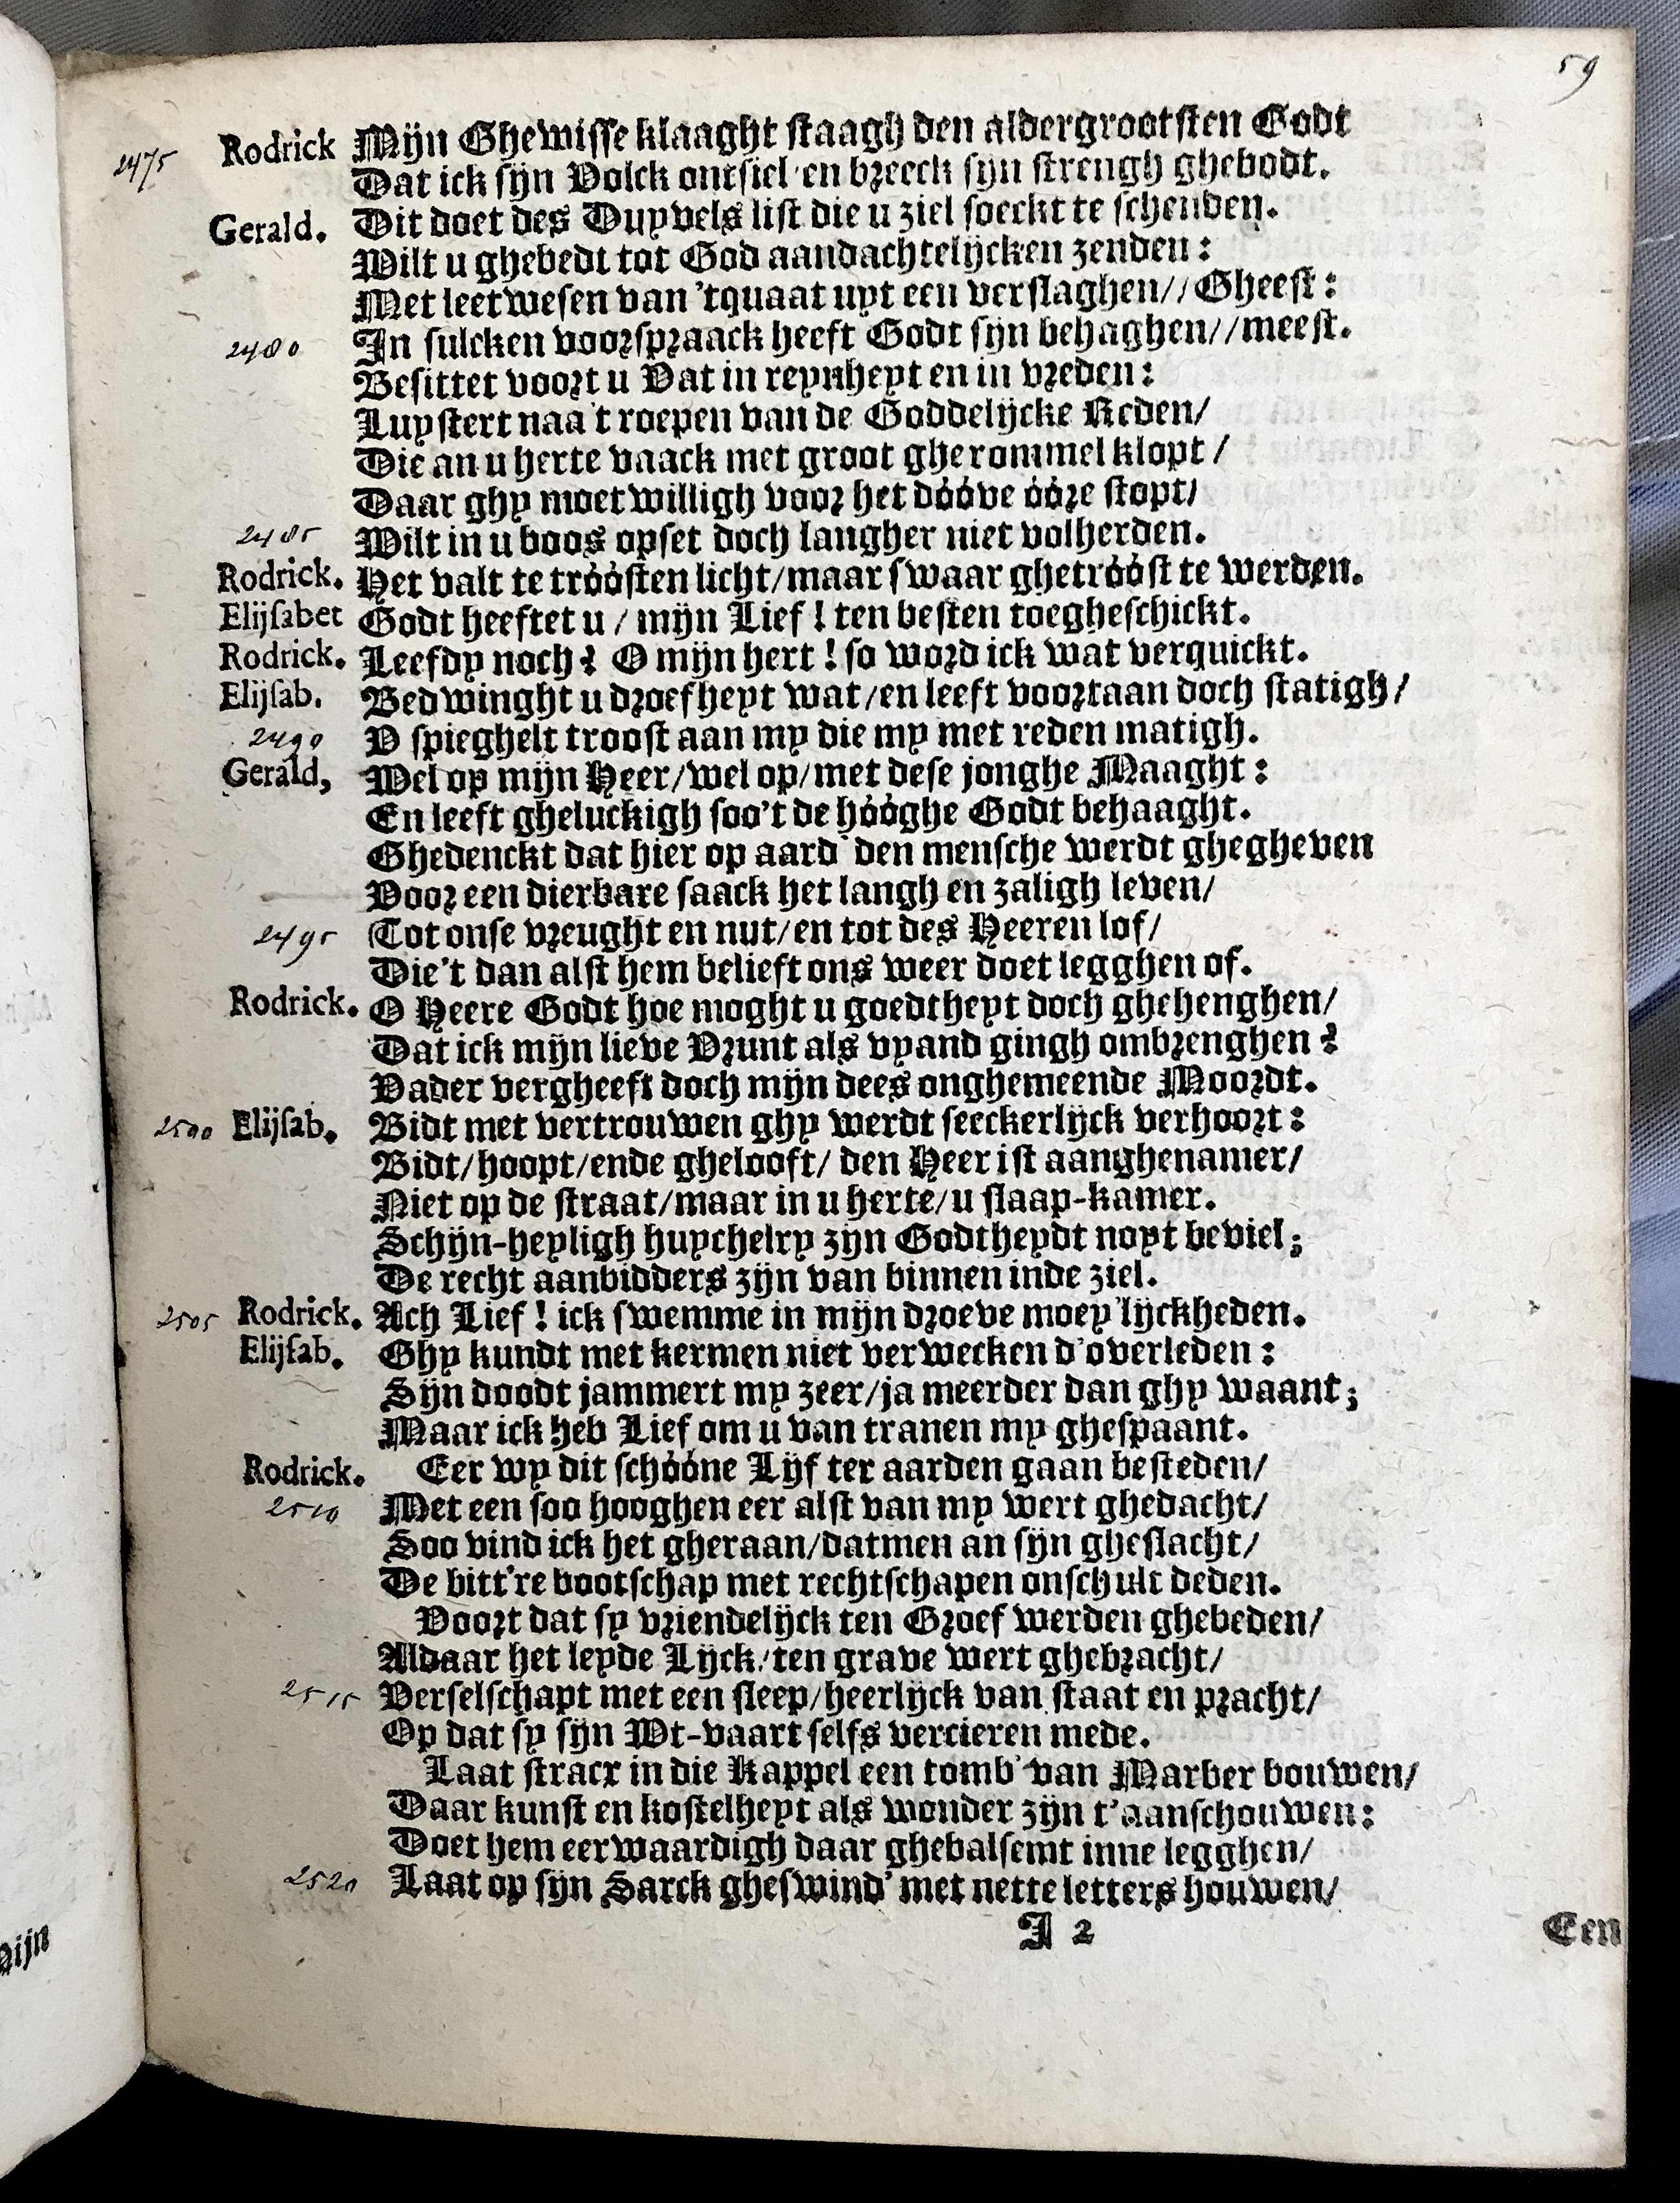 59
2475 Rodrick Mijn Ghewisse klaaght staagh den aldergrootsten Godt
Dat ick sijn Volck ontsiel en breeck sijn strengh ghebodt.
Gerald. Dit doet des Duyvels list die u ziel soeckt te schenden.
Wilt u ghebedt tot God aandachtelijcken zenden:
Met leetwesen van 'tquaat uyt een verslaghen//Gheest:
2480 In sulcken voorspraack heeft Godt sijn behaghen//meest.
Besittet voort u Vat in reynheyt en in vreden:
Luystert naa 't roepen van de Goddelijcke Reden/
Die an u herte vaack met groot gherommel klopt/
Daar ghy moetwilligh voor het dóóve óóre stopt/
2485 Wilt in u boos opset doch langher niet volherden.
Rodrick. Het valt te tróósten licht/maar swaar ghetróóst te werden.
Elijsabet Godt heeftet u/mijn Lief! ten besten toegheschickt.
Rodrick. Leefdy noch? O mijn hert! so word ick wat verquickt.
Elijsab. Bedwinght u droefheyt wat/en leeft voortaan doch statigh/
2490 V spieghelt troost aan my die my met reden matigh.
Gerald, Wel op mijn Heer/wel op/met dese jonghe Maaght:
En leeft gheluckigh soo't de hóóghe Godt behaaght.
Ghedenckt dat hier op aard' den mensche werdt ghegheven
Voor een dierbare saack het langh en zaligh leven/
2495 Tot onse vreught en nut/en tot des Heeren lof/
Die't dan alst hem belieft ons weer doet legghen of.
Rodrick. O Heere Godt hoe moght u goedtheyt doch ghehenghen/
Dat ick mijn lieve Vrunt als vyand gingh ombrenghen?
Vader vergheeft doch mijn dees onghemeende Moordt.
2500 Elijsab. Bidt met vertrouwen ghy werdt seeckerlijck verhoort:
Bidt/hoopt/ende ghelooft/den Heer ist aanghenamer/
Niet op de straat/maar in u herte/u slaap-kamer.
Schijn-heyligh huychelry zijn Godtheydt noyt beviel;
De recht aanbidders zijn van binnen inde ziel.
2505 Rodrick. Ach Lief! ick swemme in mijn droeve moey'lijckheden.
Elijsab. Ghy kundt met kermen niet verwecken d'overleden:
Sijn doodt jammert my zeer/ja meerder dan ghy waant;
Maar ick heb Lief om u van tranen my ghespaant.
Rodrick. Eer wy dit schóóne Lijf ter aarden gaan besteden/
2510 Met een soo hooghen eer alst van my wert ghedacht/
Soo vind ick het gheraan/datmen an sijn gheslacht/
De bitt're bootschap met rechtschapen onschult deden.
Voort dat sy vriendelijck ten Groef werden ghebeden/
Aldaar het leyde Lijck/ten grave wert ghebracht/
2515 Verselschapt met een sleep/heerlijck van staat en pracht/
Op dat sy sijn Wt-vaart selfs vercieren mede.
Laat stracx in die Kappel een tomb' van Marber bouwen/
Daar kunst en kostelheyt als wonder zijn t'aanschouwen:
Doet hem eerwaardigh daar ghebalsemt inne legghen/
2520 Laat op sijn Sarck gheswind' met nette letters houwen/
I 2 Een